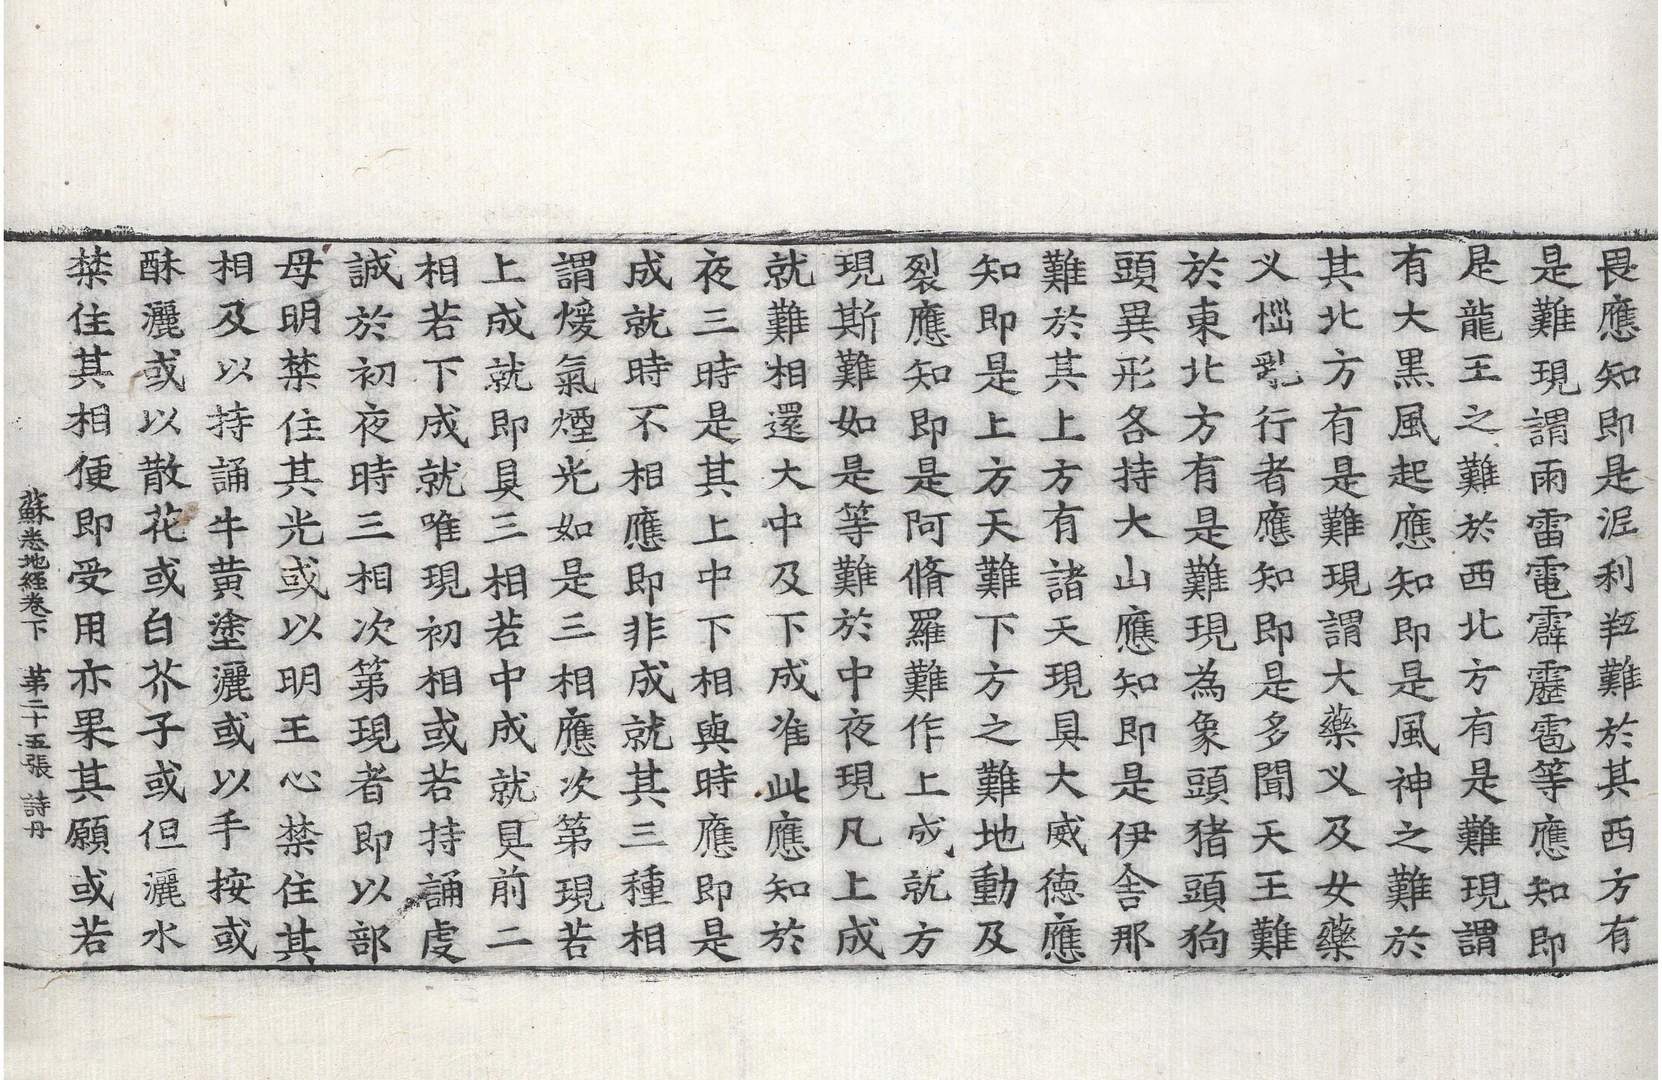 畏應知即是泥利羝難於其西方有
是難現謂雨雷電霹靂雹等應知即
是龍王之難於西北方有是難現謂
有大黒風起應知即是風神之難於
其北方有是難現謂大藥义及女藥
义惱亂行者應知即是多聞天王難
於東北方有是難現為象頭猪頭狗
頭異形各持大山應知即是伊舎那
難於其上方有諸天現具大威德應
知即是上方天難下方之難地動及
裂應知即是阿脩羅難作上成就方
現斯難如是等難於中夜現凡上成
就難相還大中及下成准此應知於
夜三時是其上中下相與時應即是
成就時不相應即非成就其三種相
謂煖氣煙光如是三相應次第現若
上成就即具三相若中成就具前二
相若下成就唯現初相或若持誦虔
誠於初夜時三相次第現者即以部
母明禁住其光或以明王心禁住其
相及以持誦牛黄塗灑或以手按或
酥灑或以散花或白芥子或但灑水
禁住其相便即受用亦果其願或若
蘇悉地經卷下　第二十五張　詩丹